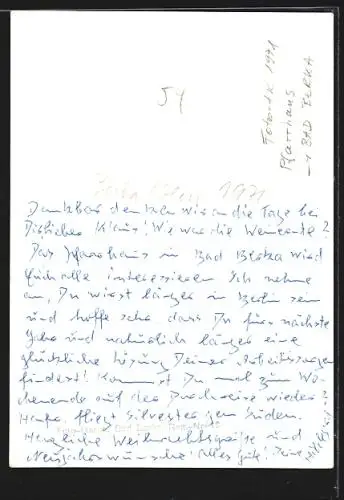 54
Foto-AK 1971
Pfarrhaus
→ BAD BERKA
1971
Dankbar denken wir an die Tage bei
Dir, lieber Klaus! Wie war die Weinernte?
Das Pfarrhaus in Bad Berka wird
Euch alle interessieren. Ich nehme
an, Du wirst länger in Berlin sein
und hoffe sehr dass Du fürs nächste
Jahr und natürlich länger eine
glückliche Lösung Deiner Arbeitssorgen
findest! Kommst Du mal zum Wo-
chenende auf der Durchreise wieder?
fliegt Silvester gen Süden.
Herzliche Weihnachtsgrüße und
Neujahrswünsche! Alles Gute! Deine